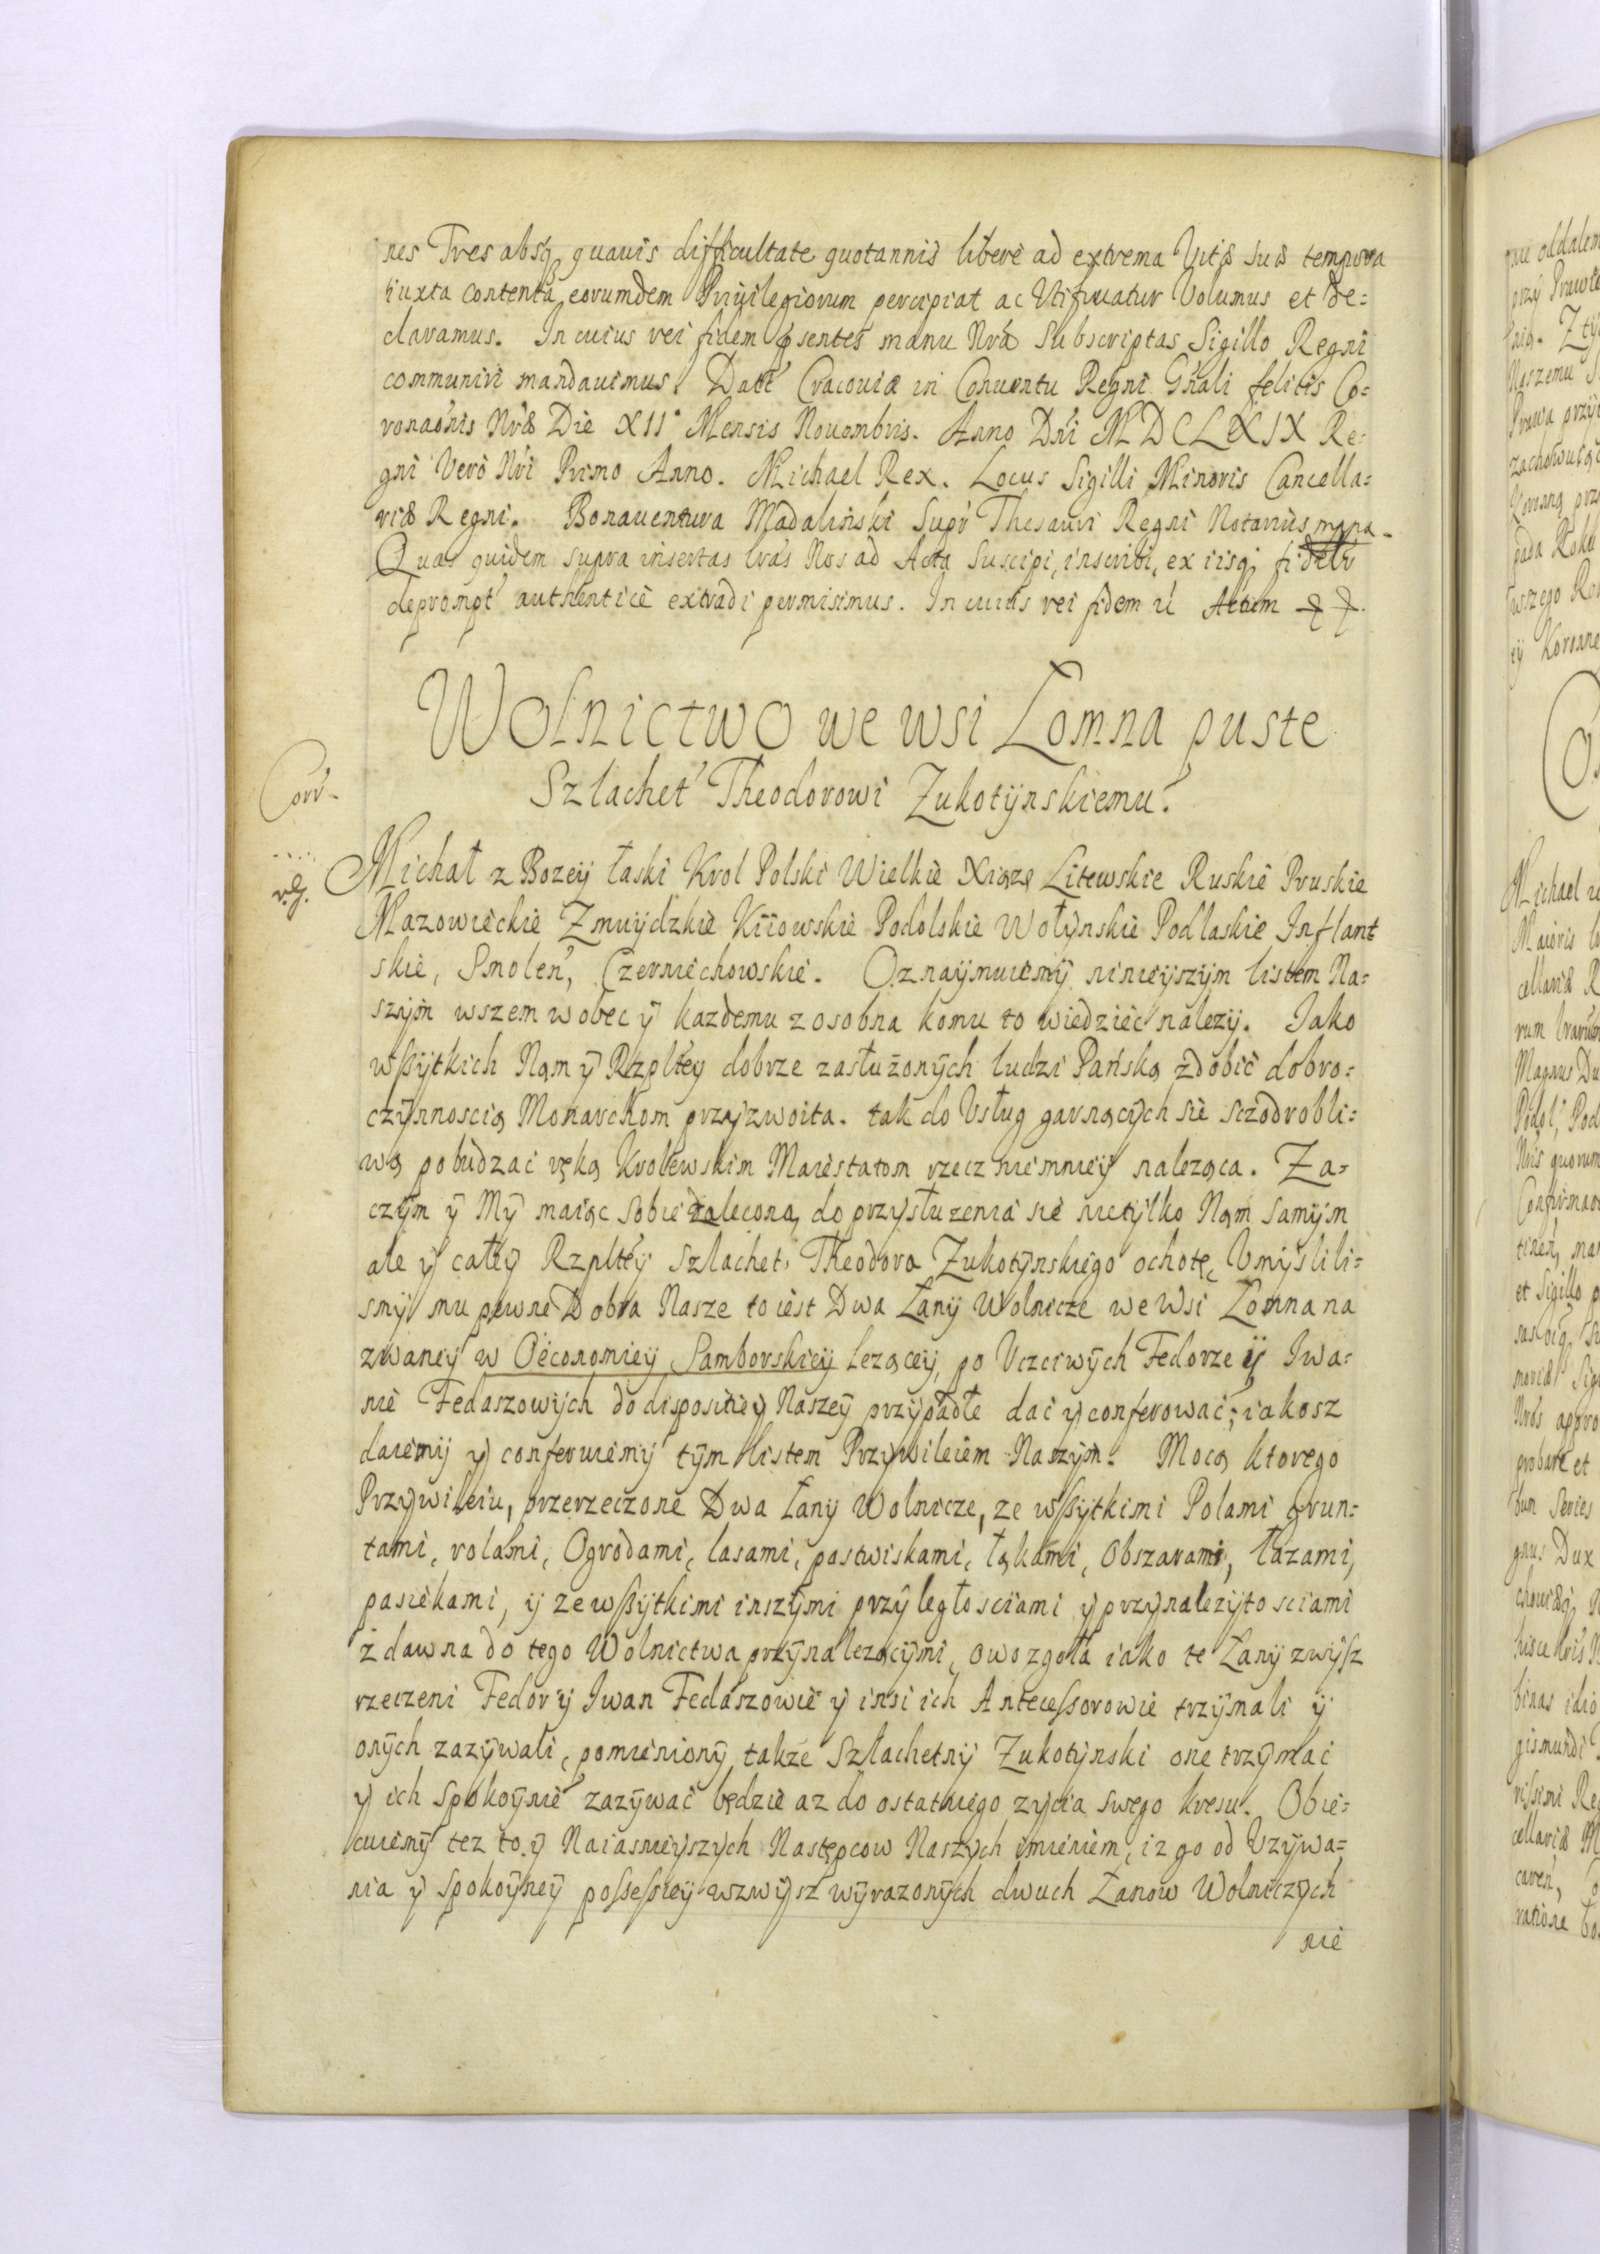 nes Tres absq quavis difficultate quotannis libere ad extrema Vitæ suæ tempora
iuxta contenta eorumdem Priuilegiorum percipiat ac Utifruatur Volumus et de=
claramus. In cuius rei fidem psentes manu Nra Subscriptas Sigillo Regni
communiri mandauimus. Datt Cracouiæ in Conuentu Regni Gnali felicis Co=
ronaonis Nræ Die XII° Mensis Nouembris. Anno Dni MDCLXIX Re=
gni Vero Nri Primo Anno. Michael Rex. Locus Sigilli Minoris Cancella=
riæ Regni. Bonauentura Madaliński Supr Thesauri Regni Notarius mppa.
Quas quidem supra insertas lras Nos ad Acta Suscipi, inscribi, ex iisq fidelr
deprompt authentice extradi permisimus. In cuius rei fidem ü Actum
Wolnictwo we wsi Łomna puste
Szlachet Theodorowi Zukotÿnskiemu.
Corr.
Michał z Bozeÿ łaski Krol Polski Wielkie Xiąze Litewskie Ruskie Pruskie
Mazowieckie Zmuÿdzkie Kiiowskie Podolskie Wołÿnskie Podlaskie Inflant
skie, Smolen, Czerniechowskie. Oznaÿmuiemÿ ninieÿszÿm listem Na=
szÿm wszem wobec ÿ kazdemu zosobna komu to wiedziec nalezÿ. Jako
wßÿtkich Nąm ÿ Rzpltey dobrze zasłużonÿch ludzi Pańską zdobic dobro=
czÿnnoscią Monarchom przÿzwoita. tak do Usług garnącÿch sie sczodrobli=
wą pobudzac ręką Krolewskim Maiestatom rzecz niemnieÿ naleząca. Za=
czÿm ÿ Mÿ maiąc sobie zaleconą do przÿsłuzenia sie nietÿlko Nąm samÿm
ale ÿ całeÿ Rzplteÿ Szlachet. Theodora Zukotÿnskiego ochotę, Umÿslili=
smÿ mu pewne Dobra Nasze to iest Dwa Łanÿ Wolnicze we Wsi Łomna na
zwaneÿ w Oeconomieÿ Samborskieÿ Lezącey, po Uczciwÿch Fedorze ÿ Iwa=
nie Fedaszowÿch do dispositieÿ Naszeÿ przÿpadłe dac ÿ conferowac; iakosz
daiemÿ ÿ conferuiemÿ tÿm listem Przÿwileiem Naszÿm. Mocą ktorego
Przÿwileiu, przerzeczone Dwa Łanÿ Wolnicze, ze wßÿtkimi Polami grun=
tami, rolami, Ogrodami, lasami, pastwiskami, łąkami, Obszarami, łazami,
pasiekami, ÿ ze wßÿtkimi inszÿmi przÿległosciami ÿ przÿnalezÿtosciami
z dawna do tego Wolnictwa przÿnalezącÿmi, owo zgoła iako te Łanÿ zwÿsz
rzeczeni Fedor ÿ Iwan Fedaszowie ÿ insi ich Antecessorowie trzÿmali ÿ
onÿch zazÿwali, pomienionÿ także Szlachetnÿ Zukotÿnski one trzÿmac
ÿ ich spokoÿnie zazÿwac będzie az do ostatniego zÿcia swego kresu. Obie=
cuiemÿ tez to ÿ Naiasnieÿszych Następcow Naszÿch imieniem, iz go od Uzÿwa=
nia ÿ spokoÿneÿ possessieÿ wzwÿsz wÿrazonÿch dwuch Łanow Wolniczÿch
nie